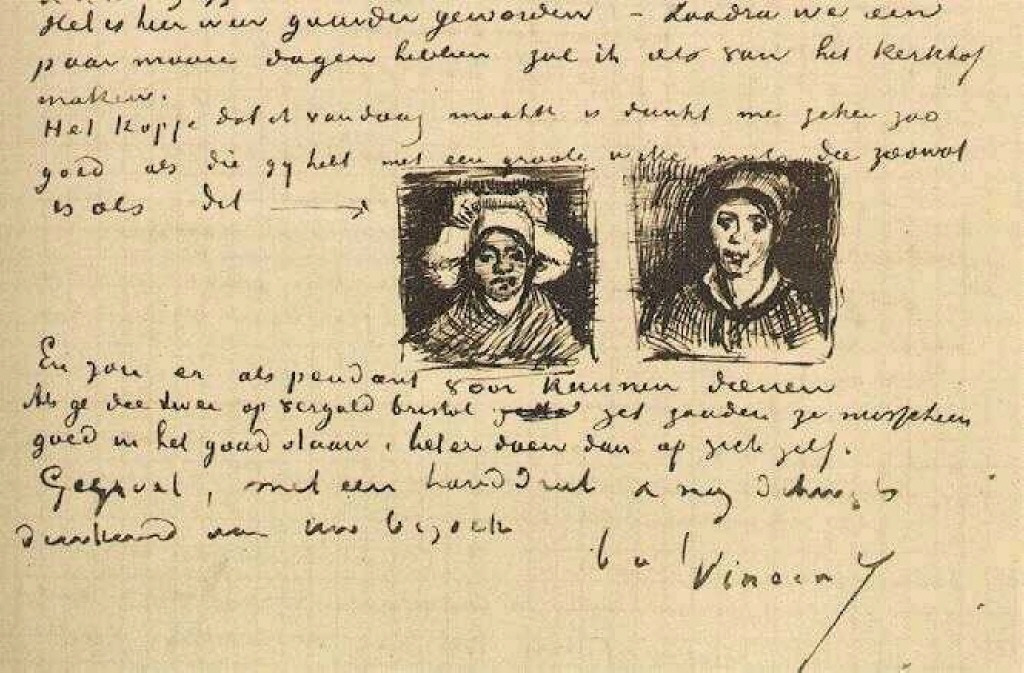 Het is hier weer guurder geworden – Zoodra we een
paar mooie dagen hebben zal ik als van het Kerkhof
maken.
Het kopje dat ik vandaag maakte is dunkt me zeker zoo
goed als die gij hebt met een groote witte muts die zoowat
is als dit
En zou er als pendant voor kunnen dienen
Als ge die twee op verguld bristol zet zouden ze misschien
goed in het goud staan, beter doen dan op zich zelf.
Gegroet, met een handdruk & nog
dankend van Uw bezoek
t.à t. Vincent